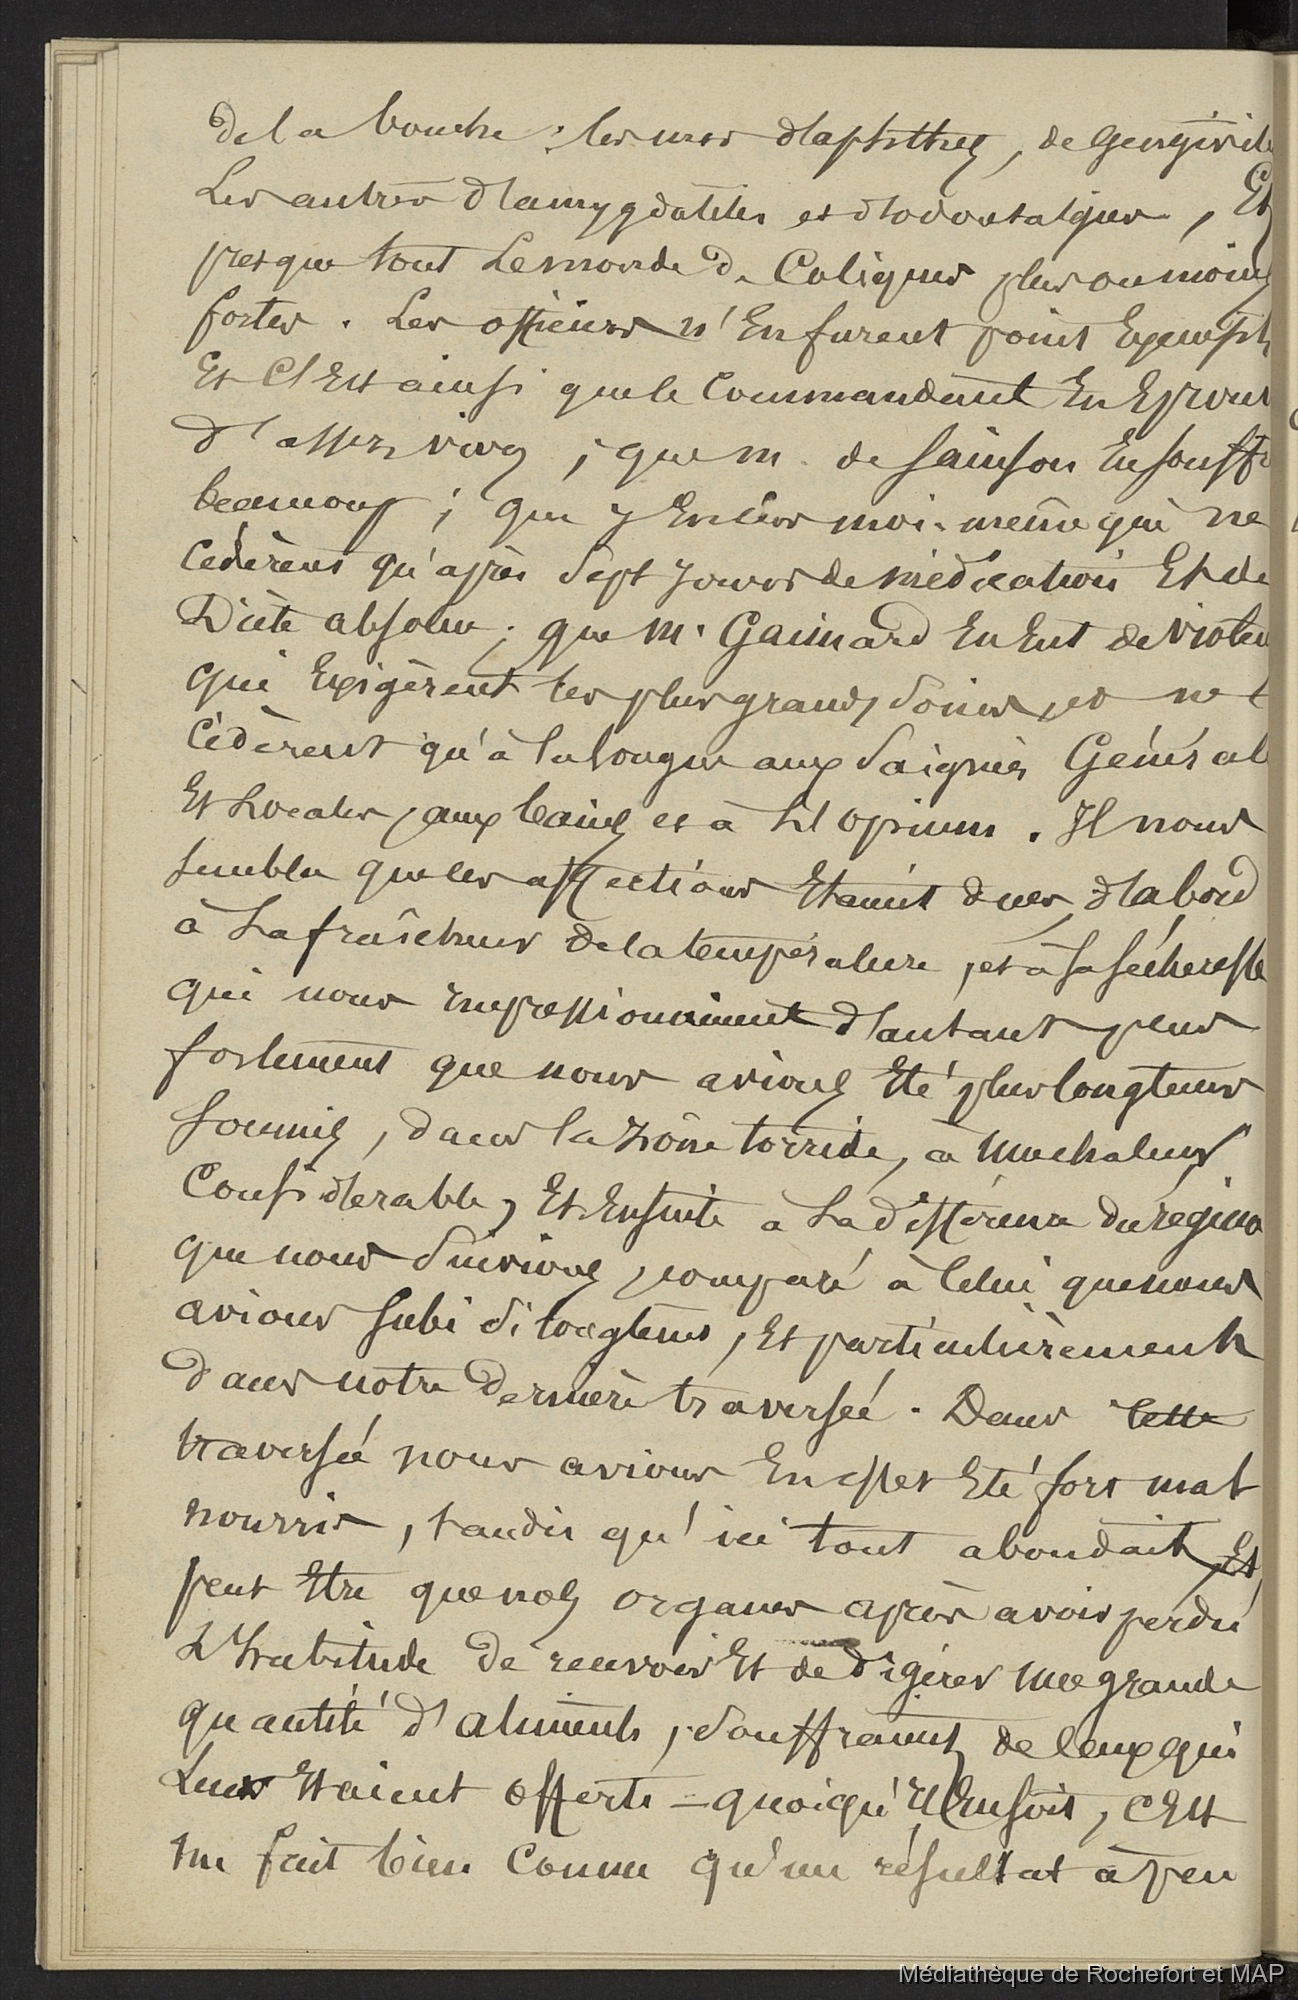 de la bouche : les uns d'aphthes, de gengivite
Les autres d'amygdalites et d'odontalgies, Et
presque tout Le monde de Coliques plus ou moins
fortes. Les officiers n'En furent point Exempts
Et C'Est ainsi que le Commandant En Eprouv
d'assez vives ; que m. de Sainson En souffr
beaucoup ; que j'En eus moi-même qui ne
Cédèrent qu'après Sept jours de médication Et de
Diète absolue ; que M. Gaimard En Eut de violen
qui Exigèrent les plus grands soins, et ne
Cédèrent qu'à la longue aux Saignées Général
Et Locales, aux bains et à L'opium. Il nous
sembla que les affections Etaient dues, d'abord
à La fraîcheur de la température, et à sa sécheresse
qui nous impressionnaient d'autant plus
fortement que nous avions Eté plus longtems
Soumis, dans la zône torride, à une chaleur
Considérable, Et Ensuite à La différence du régime
que nous Suivions, comparé à Celui que nous
avions subi si longtems, Et particulièrement
dans notre dernière traversée. Dans cette
traversée nous avions En effet Eté fort mal
nourris, tandis qu'ici tout abondait, Et
peut Etre que nos organes après avoir perdu
L'habitude de recevoir Et de digérer une grande
quantité d'aliments, Souffraient de Ceux qui
Leur Etaient offerts — quoiqu'Il En soit, C'Est
un fait bien Connu qu'un résultat à peu